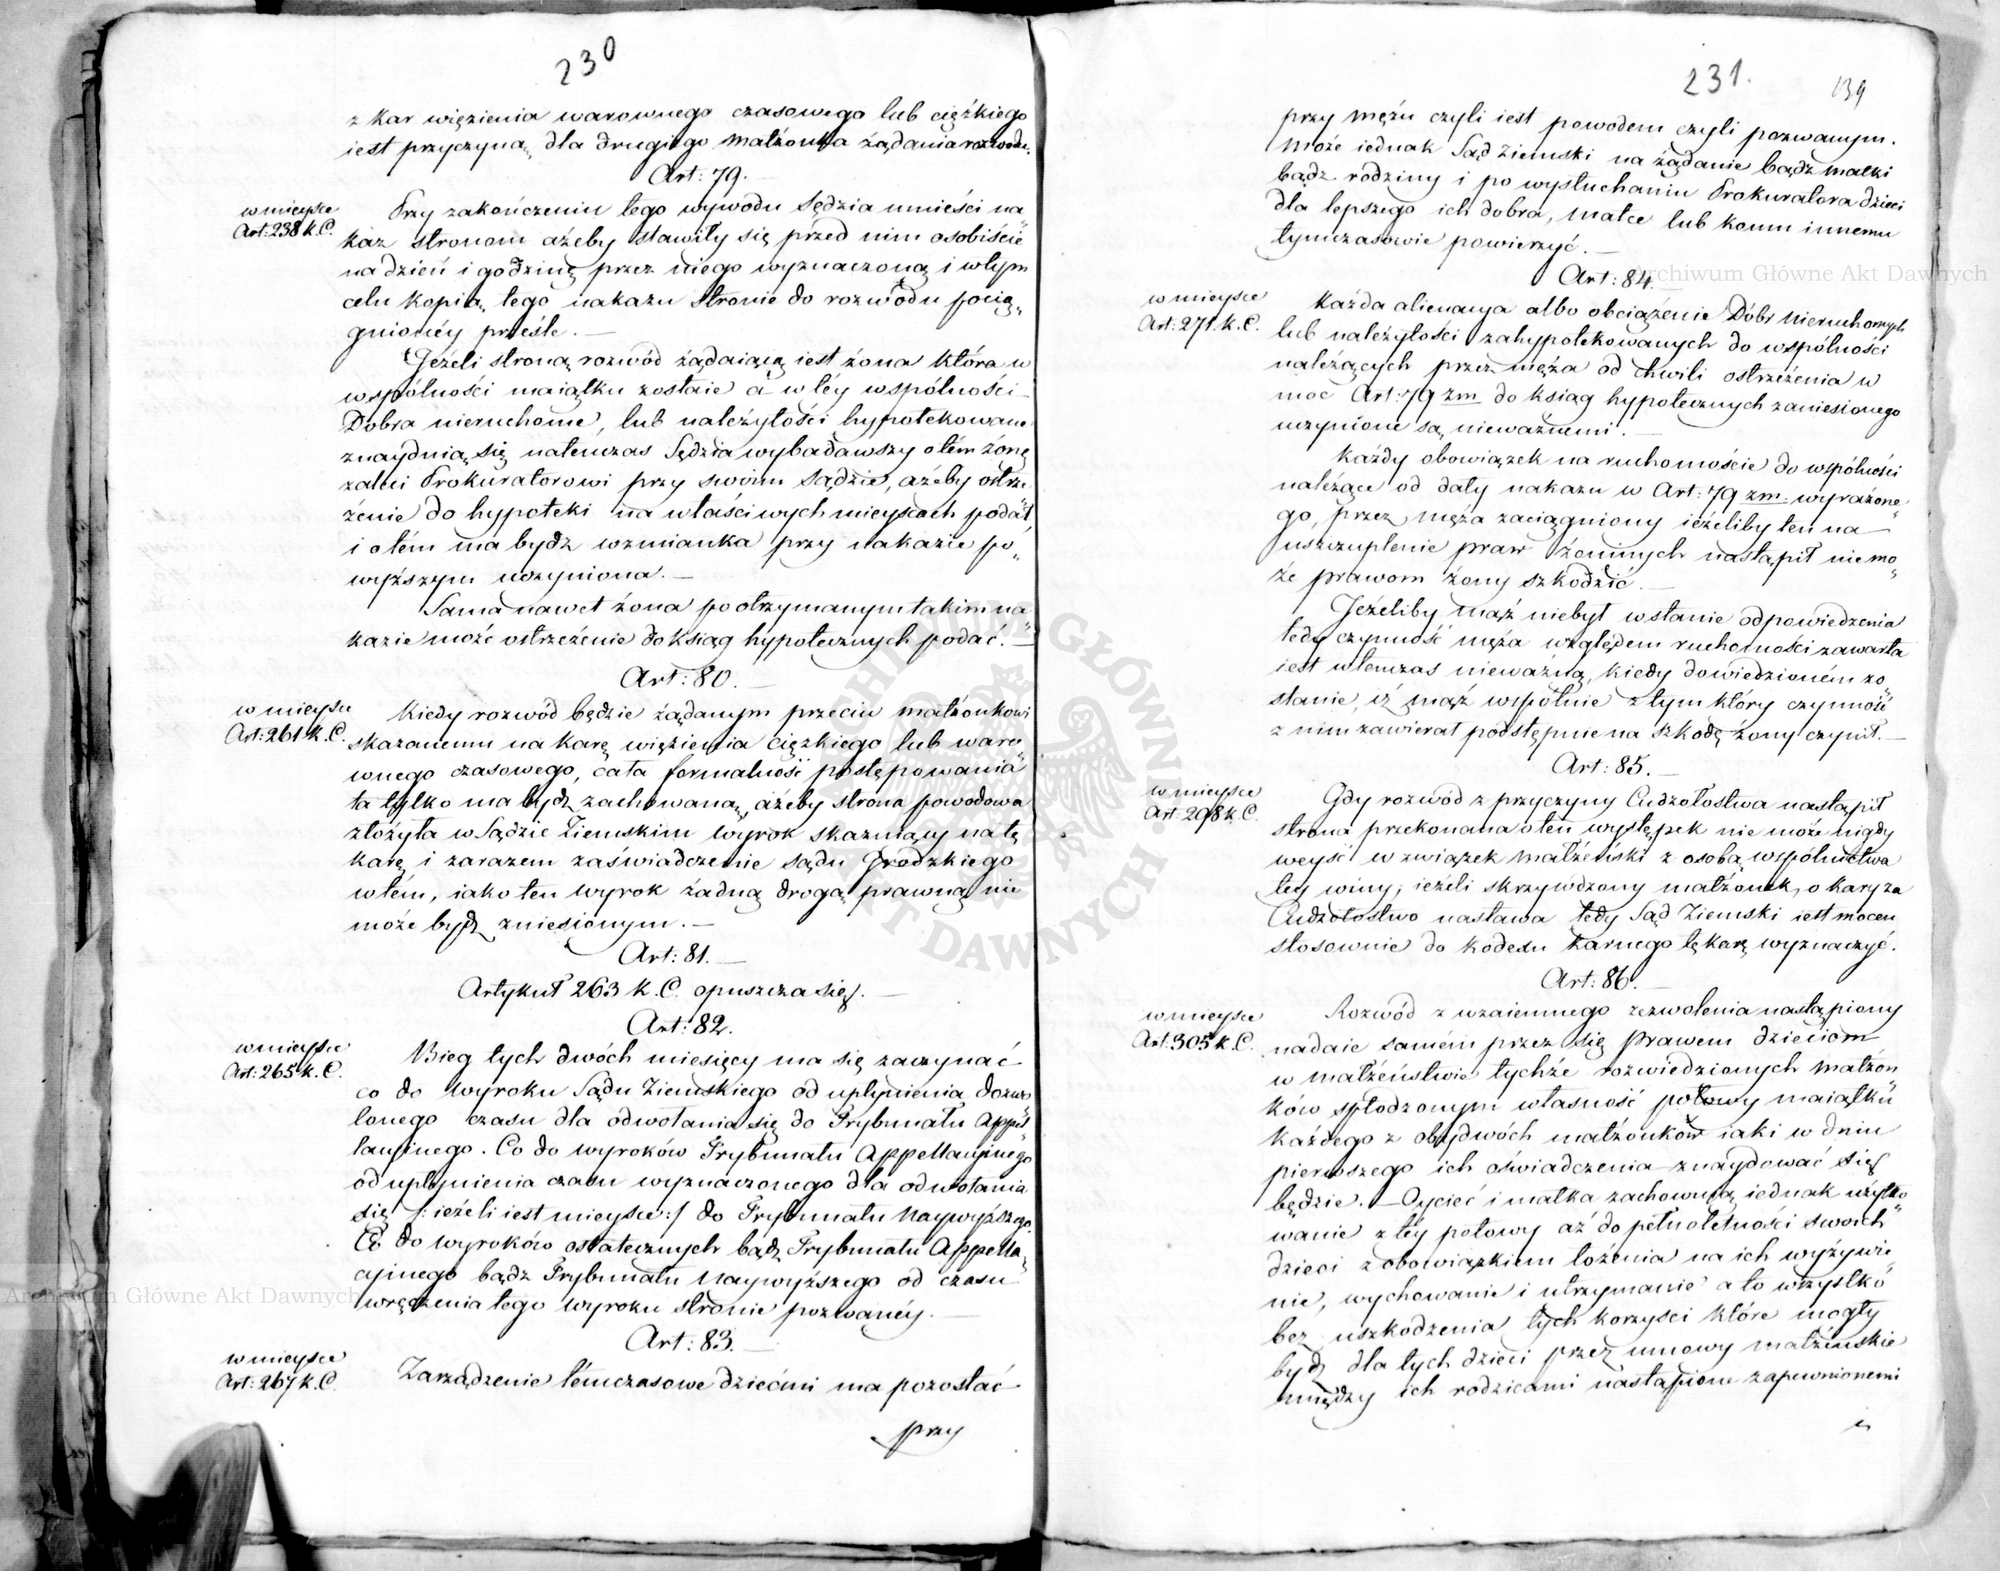 230
z kar więzienia warownego czasowego lub ciężkiego
iest przyczyną, dla drugiego małżonka żądania rozwodu.
Art: 79.
w mieysce
Art: 238 k. C.
Przy zakończeniu tego wywodu Sędzia umieści na„
kaz stronom ażeby stawiły się przed nim osobiście
na dzień i godzinę przez niego wyznaczoną i w tym
celu kopią tego nakazu stronie do rozwodu pocią„
gnionéy prześle.
Jeżeli stroną rozwód żądaiącą iest żona która w
wspólności maiątku zostaie a w tey wspólności
Dobra nieruchome, lub należytości hypotekowane
znaydują się natenczas Sędzia wybadawszy o tém żonę
zaleci Prokuratorowi przy swoim Sądzie, ażeby ostrze„
żenie do hypoteki na właściwych mieyscach podał
i o tém ma bydź wzmianka przy nakazie po„
wyższym uczyniona.
Sama nawet żona po otrzymanym takim na„
kazie może ostrzeżenie do ksiąg hypotecznych podać.
Art: 80.
w mieysce
Art: 261 k. C.
Kiedy rozwód będzie żądanym przeciw małżonkowi
skazanemu na karę więzienia ciężkiego lub waro„
wnego czasowego, cała formalność postępowania
ta tylko ma bydź zachowaną, ażeby strona powodowa
złożyła w Sądzie Ziemskim wyrok skazuiący na tę
karę i zarazem zaświadczenie sądu Grodzkiego
w tém, iako ten wyrok żadną drogą prawną nie
może bydź zniesionym.
Art: 81.
Artykuł 263 k. C. opuszcza się.
Art: 82.
w mieysce
Art: 265 k. C.
Bieg tych dwóch miesięcy ma się zaczynać
co do wyroku Sądu Ziemskiego od upłynienia dozwo„
lonego czasu dla odwołania się do Trybunału Appel„
lacyinego. Co do wyroków Trybunału Appellacyinego
od upłynienia czasu wyznaczonego dla odwołania
się /: ieżeli iest mieysce :/ do Trybunału Naywyższego.
Co do wyroków ostatecznych bądź Trybunału Appella„
cyinego bądź Trybunału Naywyższego od czasu
wręczenia tego wyroku stronie pozwanéy.
Art: 83.
w mieysce
Art: 267 k. C.
Zarządzenie témczasowe dziećmi ma pozostać
przy
231.
139
przy mężu czyli iest powodem czyli pozwanym.
Może iednak Sąd Ziemski na żądanie bądź matki
bądź rodziny i po wysłuchaniu Prokuratora dzieci
dla lepszego ich dobra, matce lub komu innemu
tymczasowie powierzyć.
Art: 84.
w mieysce
Art: 271 k. C.
Każda alienacya albo obciążenie Dóbr nieruchomych
lub należytości zahypotekowanych do wspólności
należących przez męża od chwili ostrzeżenia w
moc Art: 79 zm do ksiąg hypotecznych zaniesionego
uczynione są nieważnemi.
Każdy obowiązek na ruchomoście do wspólności
należące od daty nakazu w Art: 79 zm: wyrażone„
go, przez męża zaciągniony ieżeliby ten na
uszczuplenie praw żeninych nastąpił nie mo„
że prawom żony szkodzić.
Jeżeliby mąż niebył w stanie odpowiedzenia
tedy czynność męża względem ruchomości zawarta
iest wtenczas nieważną, kiedy dowiedzioném zo„
stanie, iż mąż wspólnie z tym który czynność
z nim zawierał podstępnie na szkodę żony czynił.
Art: 85.
w mieysce
Art: 298 k. C.
Gdy rozwód z przyczyny Cudzołostwa nastąpił
strona przekonana o ten występek nie może nigdy
weyść w związek małżeński z osobą wspólnictwa
tey winy; ieżeli skrzywdzony małżonek, o karę za
Cudzołostwo nastawa tedy Sąd Ziemski iest mocen
stosownie do kodexu karnego tę karę wyznaczyć.
Art: 86.
w mieysce
Art: 305 k. C.
Rozwód z wzaiemnego zezwolenia nastąpiony
nadaie samém przez się prawem dzieciom
w małżeństwie tychże rozwiedzionych małżon„
ków spłodzonym własność połowy maiątku
każdego z obydwóch małżonków iaki w dniu
pierwszego ich oświadczenia znaydować się
będzie. Oyciec i matka zachowuią iednak użytko„
wanie z téy połowy aż do pełnoletności swoich
dzieci z obowiązkiem łożenia na ich wyżywie„
nie, wychowanie i utrzymanie a to wszystko
bez uszkodzenia tych korzyści które mogły
bydź dla tych dzieci przez umowy małżeńskie
między ich rodzicami nastąpione zapewnionemi
Archiwum Główne Akt Dawnych
Archiwum Główne Akt Dawnych
ARCHIWUM GŁÓWNE AKT DAWNYCH